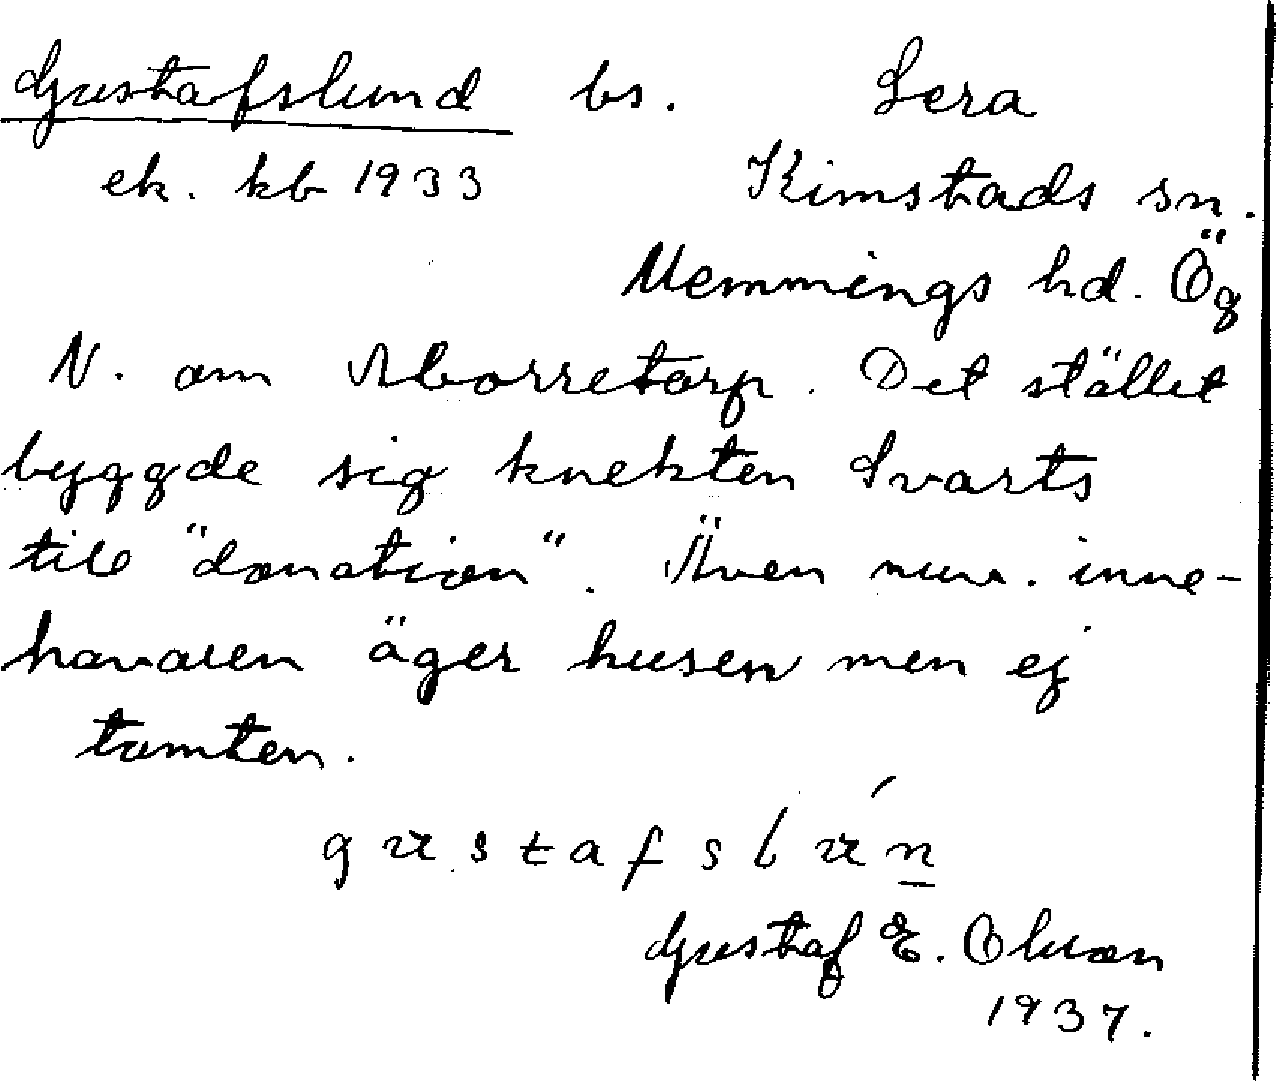 Gustafslund bs. Lera
ek. kb 1933 Kimstads sn.
Memmings hd. Ög
N. om Aborretorp. Det stället
byggde sig knekten Svarts
till "donation". Även nuv. inne-
havaren äger husen men ej
tomten.
gustafslún
Gustaf E. Olson
1937.